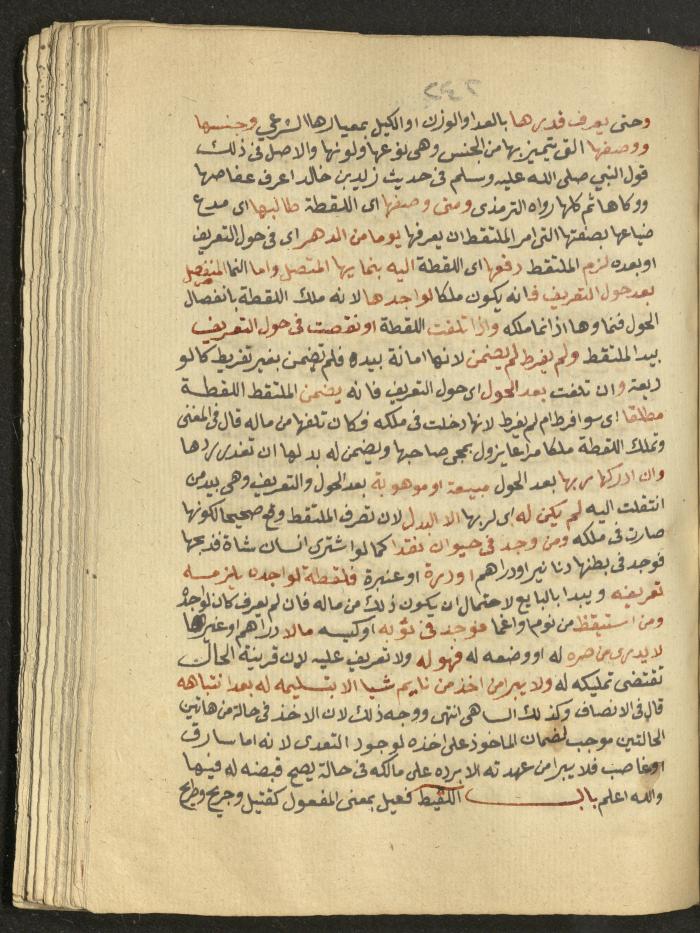 وحتى يعرف قدرها بالعد او الوزن او الكيل بمعيارها الشرعي وجنسها
ووصفها التى تتميز بها من الجنس وهى نوعها ولونها والاصل فى ذلك
قول النبي صلى الله عليه وسلم فى حديث زيد بن خالد اعرف عفاصها
ووكاها ثم كلها رواه الترمذى ومتى وصفها اى اللقطة طالبها اى مدع
ضياعها بصفتها التى امر الملتقط ان يعرفها يوما من الدهر اى فى حول التعريف
او بعده لزم الملتقط دفعها اى اللقطة اليه بنمايها المتصل واما النما المنفصل
بعد حول التعريف فانه يكون ملكا لواجدها لانه ملك اللقطة بانفصال
الحول فنماوها اذا نما ملكه واذا تلفت اللقطة او نقصت فى حول التعريف
بيد الملتقط ولم يفرط لم يضمن لانها امانة بيده فلم تضمن بغير تفريط كالو
ديعة وان تلفت بعد الحول اى حول التعريف فانه يضمن الملتقط اللقطة
مطلقا اى سوا فرط ام لم يفرط لانها دخلت فى ملكه فكان تلفها من ماله قال فى المغنى
وتملك اللقطة ملكا مراعا يزول بمجى صاحبها ويضمن له بدلها ان تعذر ردها
وان ادركها ربها بعد الحول مبيعة او موهوبة بعد الحول والتعريف وهى بيد من
انتقلت اليه لم يكن له اى لربها الا البدل لان تصرف الملتقط وقع صحيحا لكونها
صارت فى ملكه ومن وجد فى حيوان نقدا كما لو اشترى انسان شاة فذبحها
فوجد فى بطنها دنانير او دراهم او درة او عنبرة فلقطة لواجده يلزمه
تعريفه ويبدا بالبايع لاحتمال ان يكون ذلك من ماله فان لم يعرف كان لواجده
ومن استيقظ من نوم او اغما فوجد فى ثوبه او كيسه مالا دراهم او غيرها
لا يدرى من صره له او وضعه له فهو له ولا تعريف عليه لان قرينة الحال
تقتضى تمليكه له ولا يبرا من اخذ من نايم شيا الا بتسليمه له بعد انتباهه
قال فى الانصاف وكذلك الساهى انتهى ووجه ذلك لان الاخذ فى حالة من هاتين
الحالتين موجب لضمان الماخوذ على اخذه لوجود التعدى لانه اما سارق
او غاصب فلا يبرا من عهدته الا برده على مالكه فى حالة يصح قبضه له فيها
والله اعلم باب اللقيط فعيل بمعنى المفعول كقتيل وجريح وطريح